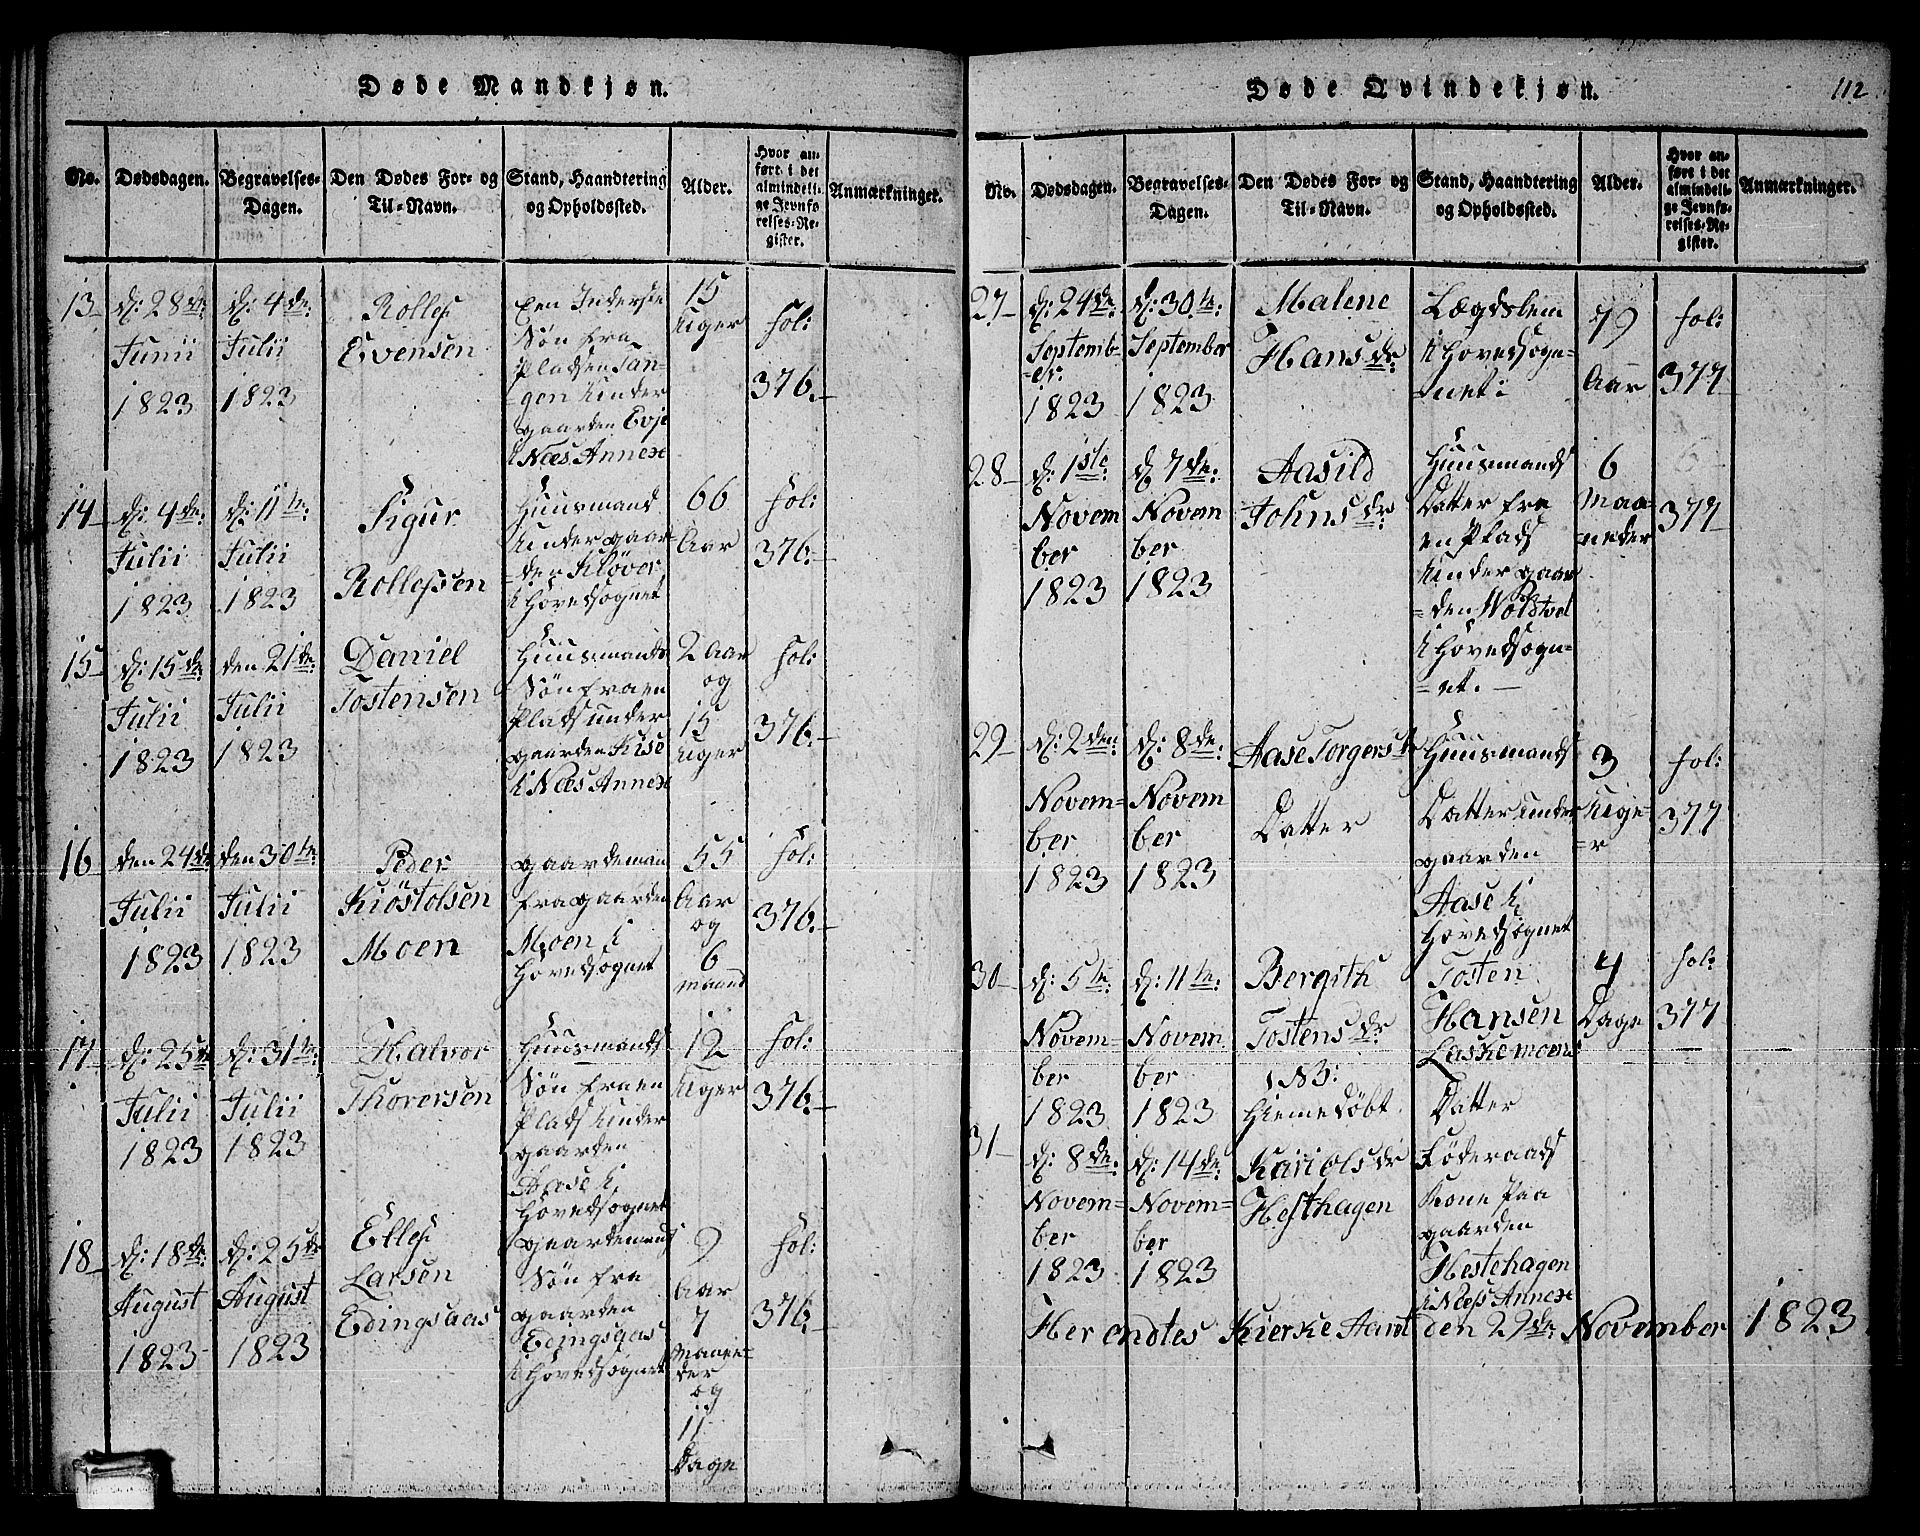 Døde Mandkjøn.
No.
Dødsdagen.
Begravelses-
Dagen.
Den Dødes For- og
Til-Navn.
Stand, Haandtering
og Opholdssted.
Alder.
Hvor an-
ført i det
almindeli-
ge Jevnfø-
relses-Re-
gister.
Anmærkninger.
13
d: 28de
Junii
1823
d: 4de:
Julii
1823
Rollef
Evensen
Een Inderste
Søn fra
Pladsen Tan-
gen under
gaarden Evje
i Næs Annex
15
Uger
fol:
376.
14
d: 4de:
Julii
1823
d: 11te:
Julii
1823
Sigur
Rollefsen
Huusmand
under gaar-
den Kløver
i Hovedsognet
66
Aar
fol:
376.
15
d: 15de
Julii
1823
den 21de:
Julii
1823
Daniel
Tostensen
Huusmands
Søn fra en
Plads under
gaarden Kise
i Næs Annex
2 Aar
og
15
Uger
fol:
376.
16
den 24de
Julii
1823
den 30te:
Julii
1823
Peder
Kiöstolsen
Moen
gaardeman
fra gaarden
Moen i
Hovedsognet
55
Aar
og
6
maand
fol:
376.
17
d: 25de
Julii
1823
d: 31te:
Julii
1823
Halvor
Thoversen
Huusmands
Søn fra en
Plads under
gaarden
Aase i
Hovedsognet
12
Uger
fol:
376.
18
d: 18de
August
1823
d: 25de
August
1823
Ellef
Larsen
Edingsaas
gaardemans
Søn fra
gaarden
Edingsaas
i Hovedsognet
9
Aar
7
Maane-
der
og
11
Dage
fol:
376.
Døde Qvindekjøn.
112
No.
Dødsdagen.
Begravelses-
Dagen.
Den Dødes For- og
Til-Navn.
Stand, Haandtering
og Opholdssted.
Alder.
Hvor an-
ført i det
almindeli-
ge Jevnfø-
relses-Re-
gister.
Anmærkninger.
27
d: 24de:
Septemb-
er.
1823
d: 30te:
September
1823
Malene
Hansdr
Lægdslem
i Hovedsogne-
net:
79
Aar
fol:
377
28
d: 1ste:
Novem
ber
1823
d 7de:
Novem
ber
1823
Aasild
Johnsdr
Huusmands
Datter fra
en Plads
under gaar
den Woldtvet
i Hovedsogn-
et.
6
Maa-
neder
377
29
d: 2den:
Novem-
ber
1823
d: 8de:
Novem
ber
1823
Aase Torgerst
Datter
Huusmands
Datter under
gaarden
Aase i
Hovedsognet
3
Uge-
r
fol:
377
30
d: 5te:
Novem-
ber
1823
d: 11te:
Novem
ber
1823
Bergith
Tostensdr
NB:
Hiemedöbt.
Tosten
Hansen
Laskemoens
Datter
4
Dage
fol:
377
31
d: 8de:
Novem-
ber
1823
d: 14de:
Novem-
ber
1823
Kari Olsdr
Hesthagen
Föderaads
Kone paa
gaarden
Hestehagen
i Næss Annex
Her endtes Kierke Aaret den 29de: November 1823